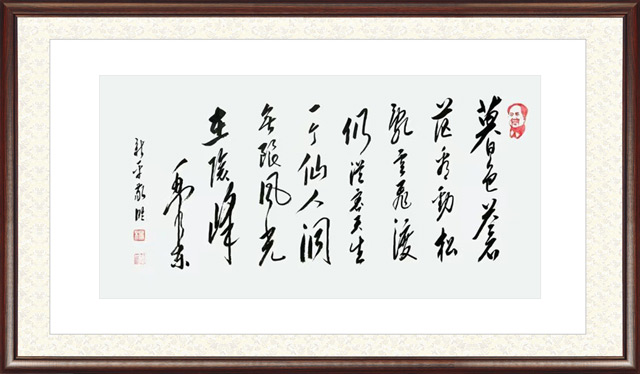 暮色苍
茫看劲松
乱云飞渡
仍从容天生
一个仙人洞
无限风光
在险峰
毛泽东